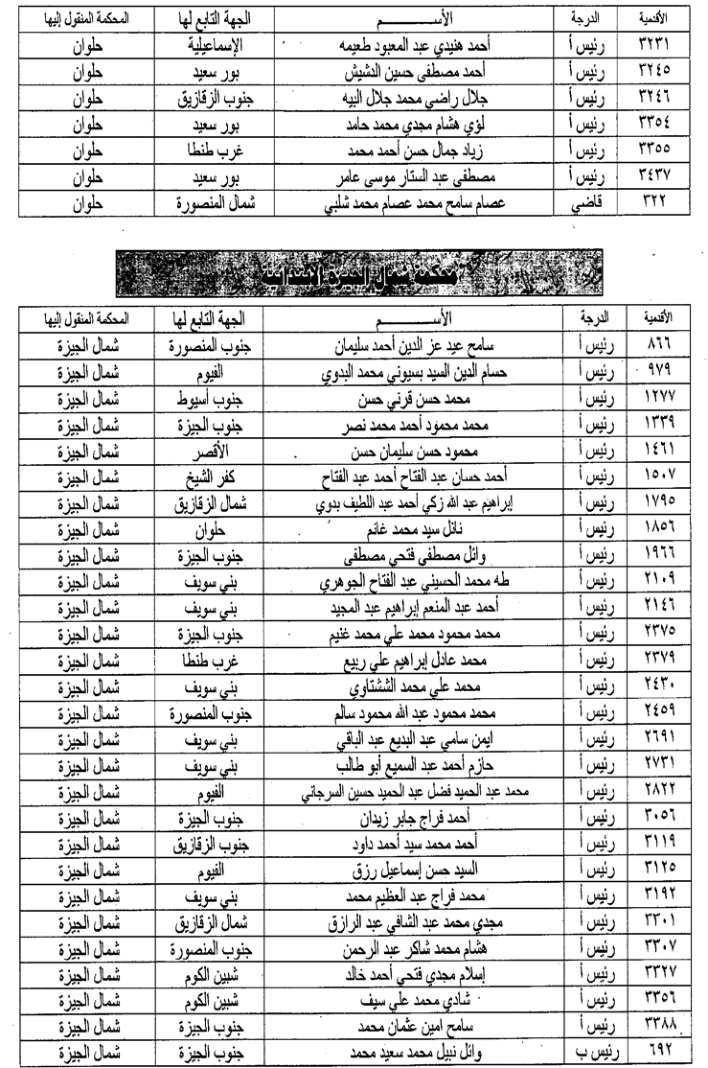 الأقدمية الدرجة الأســـــــم الجهة التابع لها المحكمة المنقول إليها
٣٢٣١ رئيس أ أحمد هنيدي عبد المعبود طعيمه الإسماعيلية حلوان
٣٢٤٥ رئيس أ أحمد مصطفى حسين الدشيش بور سعيد حلوان
٣٢٤٦ رئيس أ جلال راضي محمد جلال البيه جنوب الزقازيق حلوان
٣٣٥٤ رئيس أ لؤي هشام مجدي محمد حامد بور سعيد حلوان
٣٣٥٥ رئيس أ زياد جمال حسن أحمد محمد غرب طنطا حلوان
٣٤٣٧ رئيس أ مصطفى عبد الستار موسى عامر بور سعيد حلوان
٣٢٢ قاضي عصام سامح محمد عصام محمد شلبي شمال المنصورة حلوان
محكمة شمال الجيزة الابتدائية
الأقدمية الدرجة الأســـــــم الجهة التابع لها المحكمة المنقول إليها
٨٦٦ رئيس أ سامح عيد عز الدين أحمد سليمان جنوب المنصورة شمال الجيزة
٩٧٩ رئيس أ حسام الدين السيد بسيوني محمد البدوي الفيوم شمال الجيزة
١٢٧٧ رئيس أ محمد حسن قرني حسن جنوب أسيوط شمال الجيزة
١٣٣٩ رئيس أ محمد محمود أحمد محمد نصر جنوب الجيزة شمال الجيزة
١٤٦١ رئيس أ محمود حسن سليمان حسن الأقصر شمال الجيزة
١٥٠٧ رئيس أ أحمد حسان عبد الفتاح أحمد عبد الفتاح كفر الشيخ شمال الجيزة
١٧٩٥ رئيس أ إبراهيم عبد الله زكي أحمد عبد اللطيف بدوي شمال الزقازيق شمال الجيزة
١٨٥٦ رئيس أ نائل سيد محمد غانم حلوان شمال الجيزة
١٩٦٦ رئيس أ وائل مصطفى فتحي مصطفى جنوب الجيزة شمال الجيزة
٢١٠٩ رئيس أ طه محمد الحسيني عبد الفتاح الجوهري بني سويف شمال الجيزة
٢١٤٦ رئيس أ أحمد عبد المنعم إبراهيم عبد المجيد بني سويف شمال الجيزة
٢٣٧٥ رئيس أ محمد محمود محمد علي محمد غنيم جنوب الجيزة شمال الجيزة
٢٣٧٩ رئيس أ محمد عادل إبراهيم علي ربيع غرب طنطا شمال الجيزة
٢٤٣٠ رئيس أ محمد علي محمد الششتاوي بني سويف شمال الجيزة
٢٤٥٩ رئيس أ محمد محمود عبد الله محمود سالم جنوب المنصورة شمال الجيزة
٢٦٩١ رئيس أ ايمن سامي عبد البديع عبد الباقي بني سويف شمال الجيزة
٢٧٣١ رئيس أ حازم أحمد عبد السميع أبو طالب بني سويف شمال الجيزة
٢٨٢٢ رئيس أ محمد عبد الحميد فضل عبد الحميد حسين السرجاني الفيوم شمال الجيزة
٣٠٥٦ رئيس أ أحمد فراج جابر زيدان جنوب الجيزة شمال الجيزة
٣١١٩ رئيس أ أحمد محمد سيد أحمد داود جنوب الزقازيق شمال الجيزة
٣١٢٥ رئيس أ السيد حسن إسماعيل رزق الفيوم شمال الجيزة
٣١٩٢ رئيس أ محمد فراج عبد العظيم محمد بني سويف شمال الجيزة
٣٣٠١ رئيس أ مجدي محمد عبد الشافي عبد الرازق شمال الزقازيق شمال الجيزة
٣٣٠٧ رئيس أ هشام محمد شاكر عبد الرحمن جنوب المنصورة شمال الجيزة
٣٣٢٧ رئيس أ إسلام مجدي فتحي أحمد خالد شبين الكوم شمال الجيزة
٣٣٥٦ رئيس أ شادي محمد علي سيف شبين الكوم شمال الجيزة
٣٣٨٨ رئيس أ سامح امين عثمان محمد جنوب الجيزة شمال الجيزة
٦٩٢ رئيس ب وائل نبيل محمد سعيد محمد جنوب الجيزة شمال الجيزة